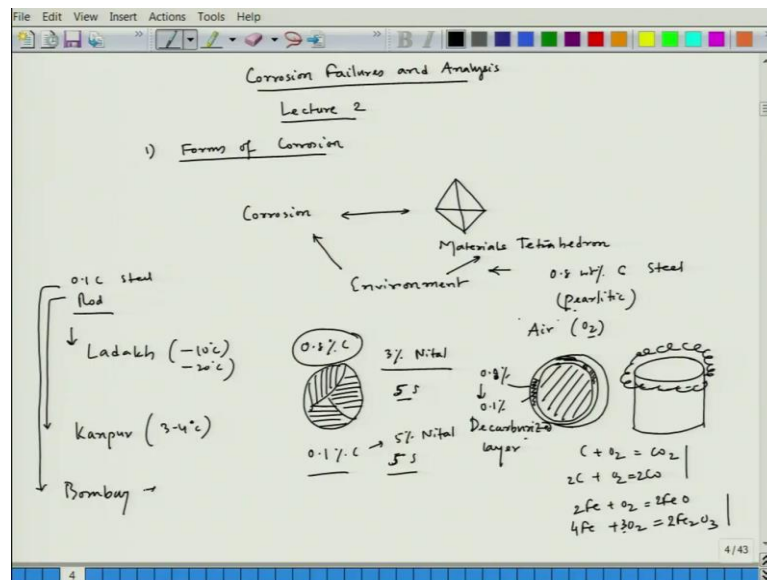 File Edit View Insert Actions Tools Help
B I
Corrosion Failures and Analysis
Lecture 2
1) Forms of Corrosion
Corrosion
Materials Tetrahedron
Environment
0.8 wt% C Steel
(pearlitic)
Air (O2)
0.1C steel
Rod
Ladakh (-10°C)
-20°C)
Kanpur (3-4°C)
Bombay
0.8% C
3% Nital
5 S
0.1% C
5% Nital
5 S
0.8%
0.1%
Decarburized
layer
C + O2 = CO2
2C + O2 = 2CO
2Fe + O2 = 2FeO
4Fe + 3O2 = 2Fe2O3
4/43
4